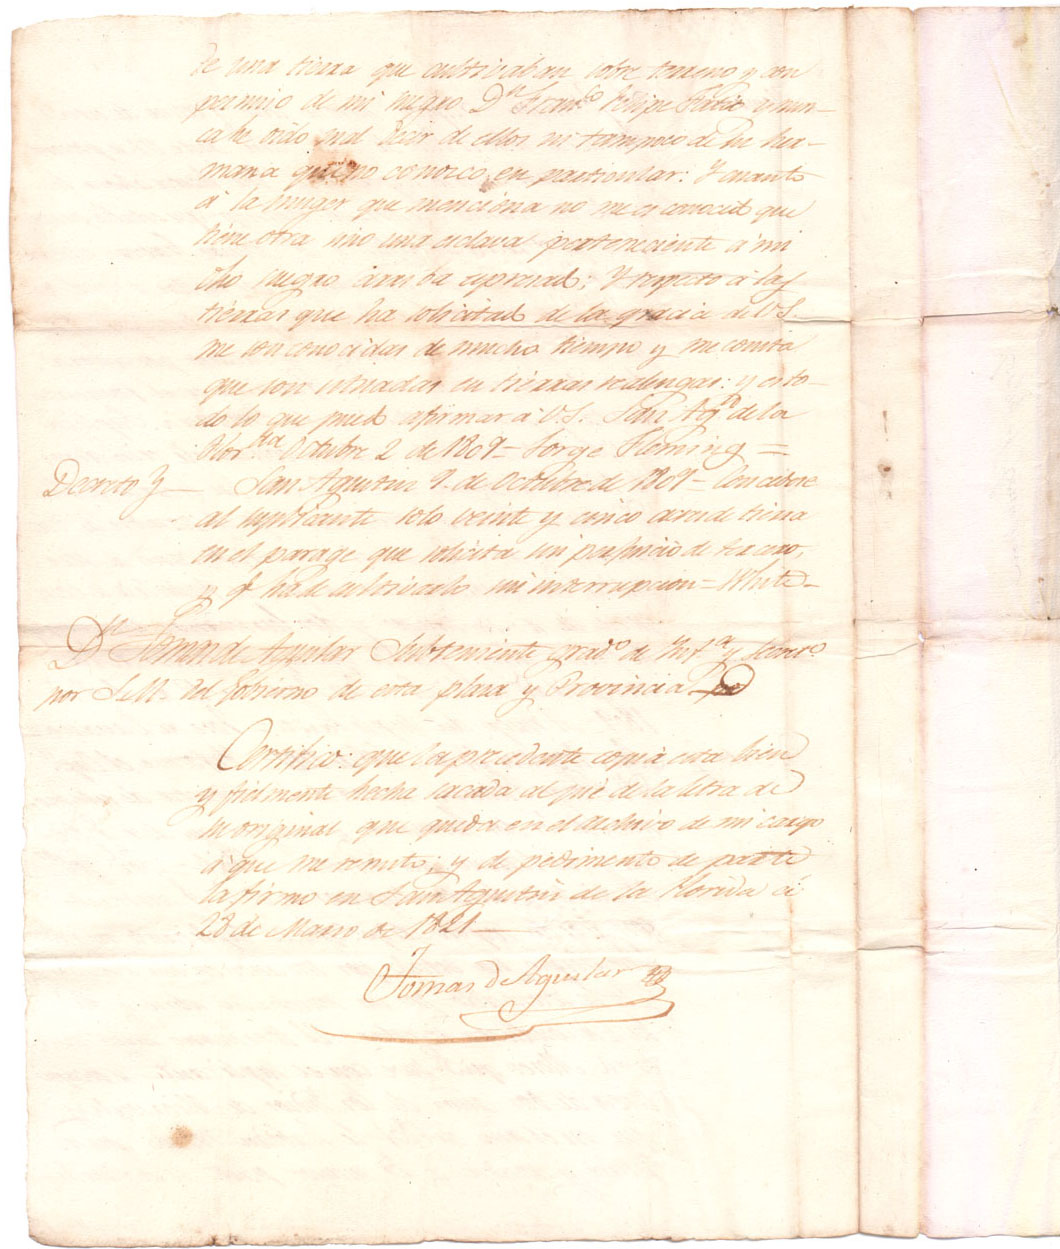 de una tierra que cultivaban sobre terreno y con
permiso de mi suegro Dn Franco Felipe Fatio y nun-
ca he oido mal decir de ellos ni tampoco de su her-
mana quien no conosco en particular: Y cuanto
á la muger que menciona no me es conocid que
tiene otra sino una esclava perteneciente á mi
dho suegro arriba expresad; Y respecto á las
tierras que ha solicitad de la gracia de V.S.
me son conocidas de mucho tiempo y me consta
que son situadas en tierras realengas: y es to-
do lo que pued afirmar á V.S. San Agn de la
Flor.da Octubre 2 de 1809 = Jorge Fleming =
Decreto San Agustin 9 de Octubre de 1809 = Concedese
al suplicante solo veinte y cinco acres de tierra
en el parage que solicita sin perjuicio de tercero,
y q ha de cultivarlo sin interrupcion = White =
Dn Tomas de Aguilar Subteniente grado de Infa y Secreto
por S.M. del Gobierno de esta plaza y Provincia
Certifico: que la precedente copia esta bien
y fielmente hecha sacada al pie de la letra de
su original que queda en el archivo de mi cargo
á que me remito; y de pedimento de parte
la firmo en San Agustin de la Florida á
28 de Marzo de 1821
Tomas de Aguilar